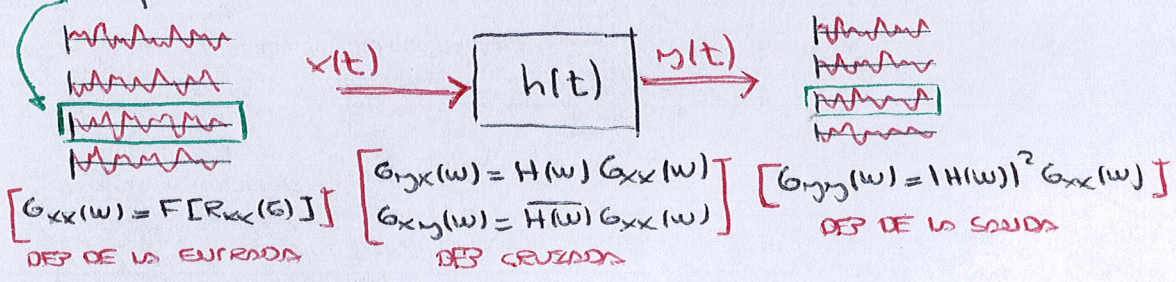 x(t)
h(t)
y(t)
[Gxx(ω) = F[Rxx(τ)]]
DEP DE LA ENTRADA
[Gyx(ω) = H(ω) Gxx(ω)
Gxy(ω) = H̅(̅ω̅)̅ Gxx(ω)]
DEP CRUZADA
[Gyy(ω) = |H(ω)|² Gxx(ω)]
DEP DE LA SALIDA